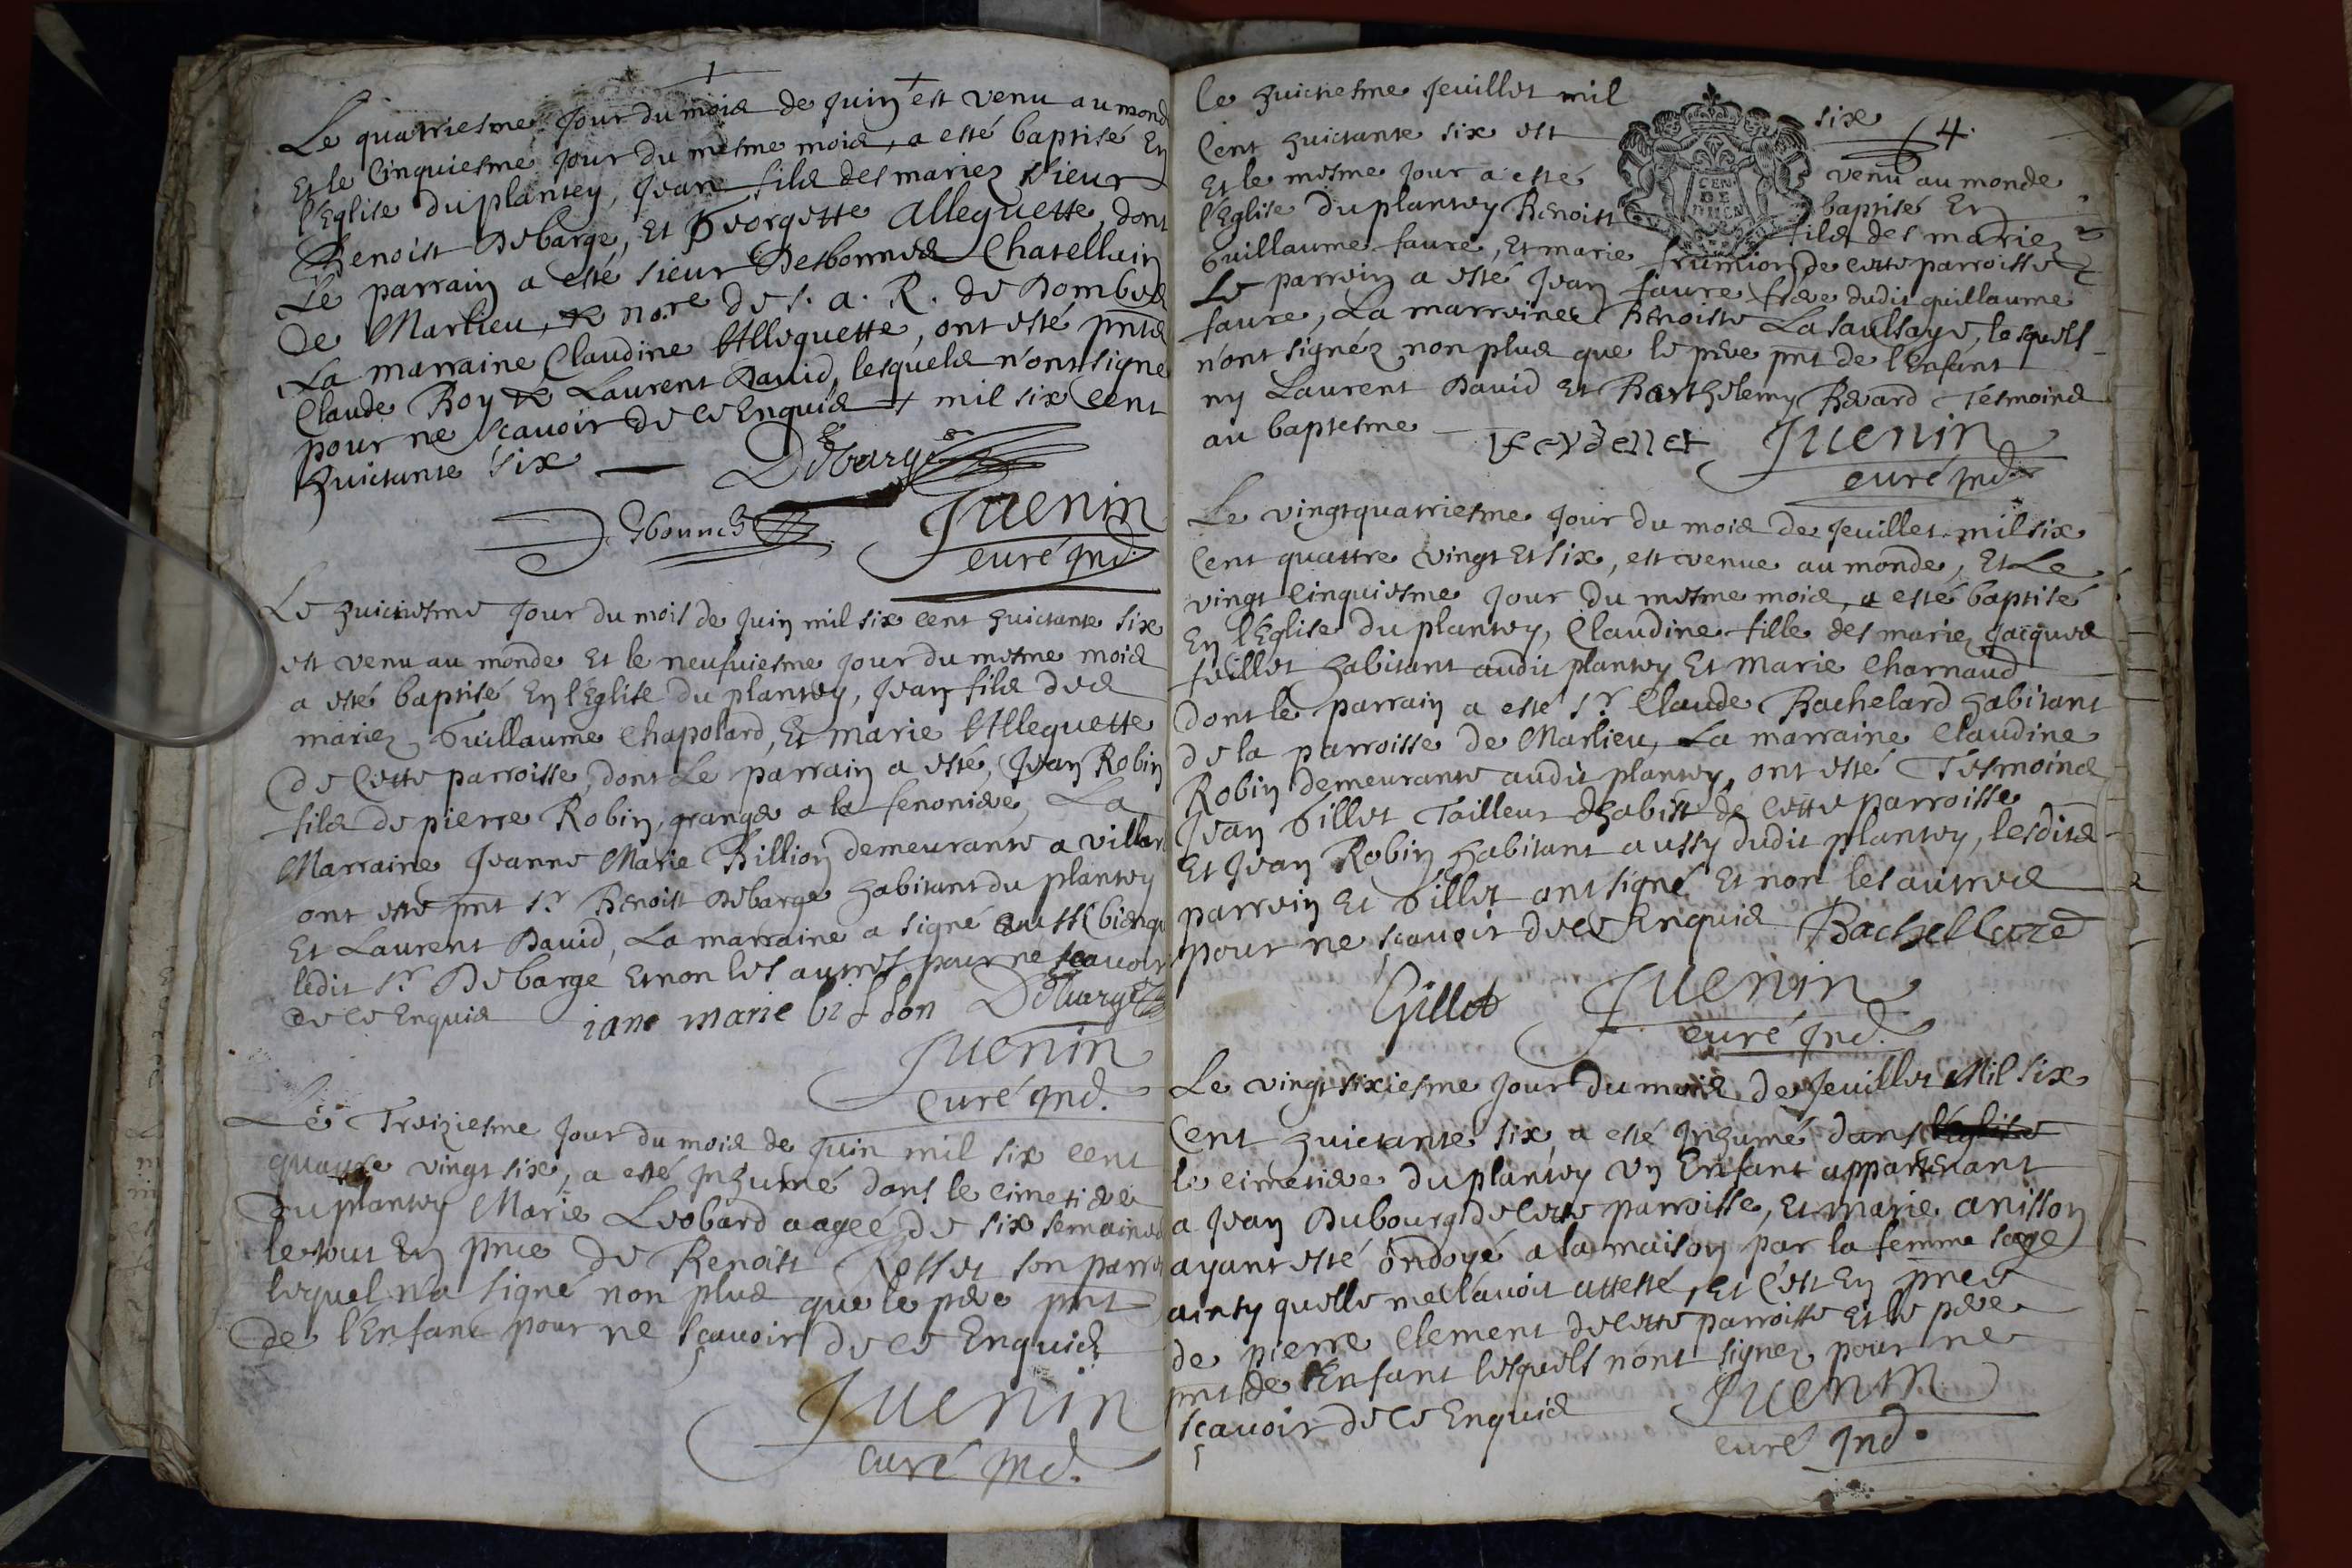 Le quatriesme Jour du mois de Juin + est venu au mond
Et le Cinquiesme Jour du mesme mois, a esté baptisé En
l'Eglise du plantey, Jean fils des mariez sieur
Benoist Debarge, Et Georgette Alleguette, dont
Le parrain a esté sieur Desbonnes Chatellain
De Marlieu, & no.re de s. a. R. de Dombes
La marraine Claudine Alleguette, ont esté pnts
Claude Roy & Laurent David, lesquels n'ont signe
pour ne scavoir de ce Enquis + mil six Cent
huictante six — Debarge
Desbonnes Juenin
curé Ind.
Le huictiesme Jour du mois de Juin mil six cent huictante six
est venu au monde Et le neufuiesme Jour du mesme mois
a esté baptisé En l'Eglise du plantey, Jean fils des
mariez Guillaume Chapolard, Et marie Alleguette
De Cette parroisse, dont Le parrain a esté, Jean Robin
fils de pierre Robin, granger a la fenoniere, La
Marraine Jeanne Marie Billion demeurante a villar
ont esté pnt sr. Benoist Debarge habitant du plantey
Et Laurent David, La marraine a signé aussi bienqu
ledit sr. Debarge Et non les autres pour ne scavoir
de ce Enquis iane marie billon Debarge
Juenin
Curé Ind.
Le Treiziesme Jour du mois de Juin mil six cent
quattre vingt six, a esté Inhumé dans le cimetiere
Du plantey Marie Leobard aageé de six semaines
le tout En pnce de Benoist Rosset son parrei
lequel n'a signé non plus que le pere pnt
de l'Enfant pour ne scavoir de ce Enquis
Juenin
curé Ind.
le huictiesme Jeuillet mil six 4.
Cent huictante six est venu au monde
Et le mesme Jour a esté baptisé En
l'Eglise du plantey Benoist fils des mariez
Guillaume faure, Et marie frumion de cette parroisse
Le parrein a esté Jean faure frere dudit guillaume
faure, La marreine Benoiste La saulsaye, lesquels
n'ont signéz non plus que le pere pnt de l'Enfant
ny Laurent David Et Barthelemy Revard Tesmoins
au baptesme — feydellet Juenin
curé Ind.
Le vingtquatriesme Jour du mois de Jeuillet mil six
Cent quattre vingt Et six, est venue au monde, Et Le
vingt Cinquiesme Jour du mesme mois, a esté baptisé
En l'Eglise du plantey, Claudine fille des mariez Jacques
feillet habitant audit plantey Et marie Charnaud
dont le parrain a esté sr. Claude Bachelard habitant
de la parroisse de Marlieu, La marraine Claudine
Robin demeurante audit plantey, ont esté Tesmoins
Jean Gillet Tailleur d'habist de Cette parroisse
Et Jean Robin habitant aussy dudit plantey, lesdits
parrein Et Gillet ont signé Et non les autres
pour ne scavoir de ce Enquis Bachellard
Gillet Juenin
curé Ind.
Le vingt sixiesme Jour du mois de Jeuillet Mil six
Cent huictante six, a esté Inhumé dans l'Eglise
le cimetiere du plantey un Enfant appartenant
a Jean Dubourg de Cette parroisse, Et marie anisson
ayant esté ondoyé a la maison par la femme sage
ainsy quelle me l'avoit attesté, Et c'est En pnce
de pierre Clement de cette parroisse Et le pere
pnt de l'Enfant lesquels n'ont signez pour ne
scavoir de ce Enquis Juenin
curé Ind.